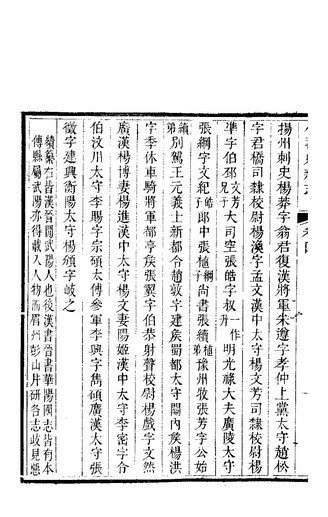 揚州刺史楊莽字翁君復漢將軍朱遵字孝仲上黨太守趙松
字君橋司隸校尉楊渙字孟文漢中太守楊文芳司隸校尉楊
準字伯邳文芳兄子大司空張皓字叔明一作光祿大夫廣陵太守
張綱字文紀皓子郎中張植綱弟尚書張續植弟豫州牧張方字公始
續弟別駕王元義士新都令趙敦字建矦蜀郡太守關內矦楊洪
字季休車騎將軍都亭矦張翼字伯恭射聲校尉楊戲字文然
廣漢楊博妻楊進漢中太守楊文妻陽姬漢中太守李密字令
伯汶川太守李賜字宗碩太傅參軍李興字雋碩廣漢太守張
徵字建興衡陽太守楊頒字岐之
續纂在昔漢晉間武陽人也後漢書晉書華陽國志皆有本
傳縣屬武陽亦得載入人物而眉州彭山井研各志歧見慇